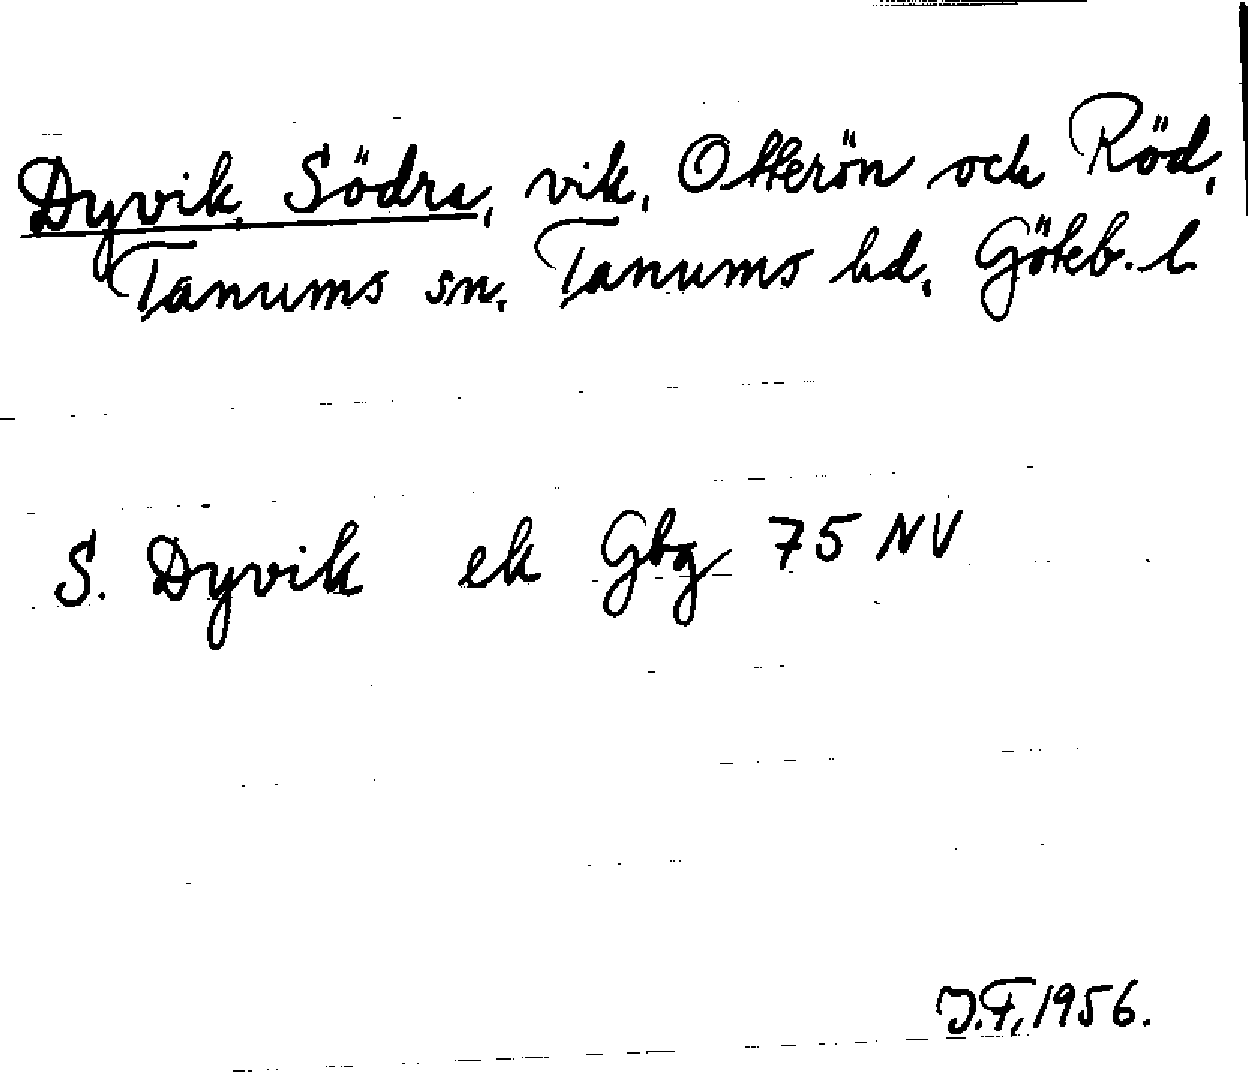 Dyvik, Södra, vik, Otterön och Röd,
Tanums sn, Tanums hd, Göteb. l
S. Dyvik ek Gbg 75 NV
J.F, 1956.